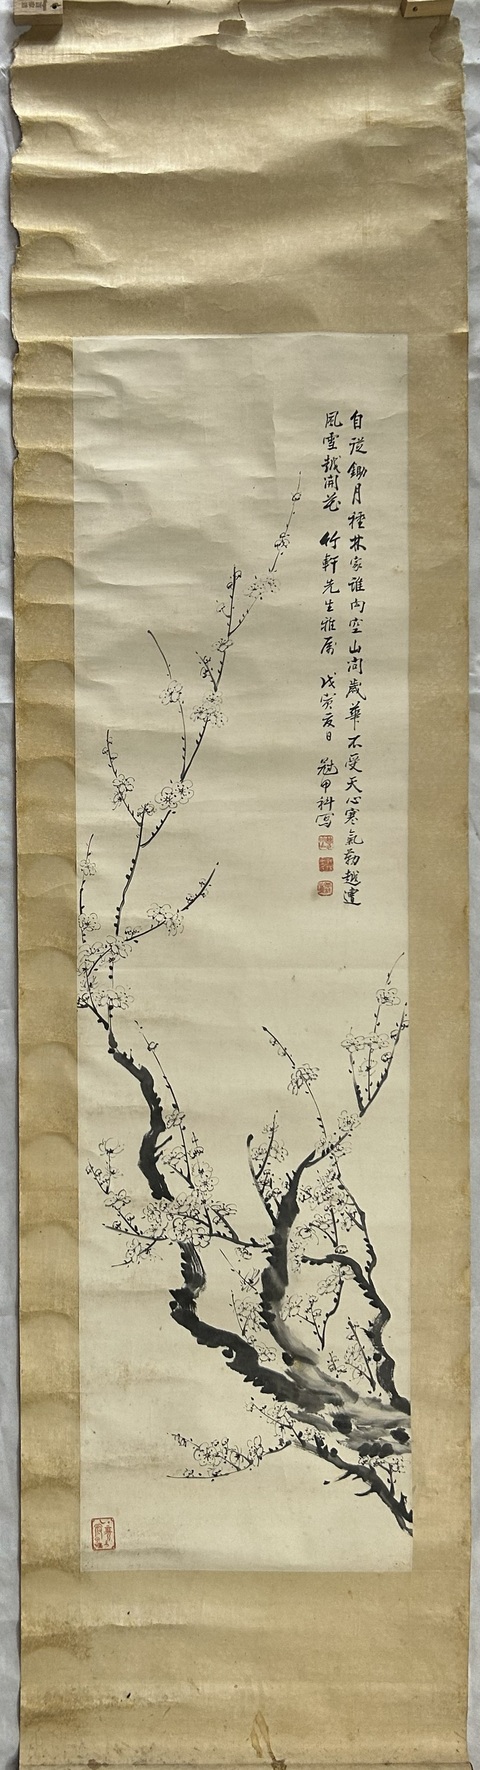 自從鋤月種林家誰向空山問歲華不受天心寒氣勒越遭
風雪越開花 竹軒先生雅屬 戊寅夏日 冠甲科写